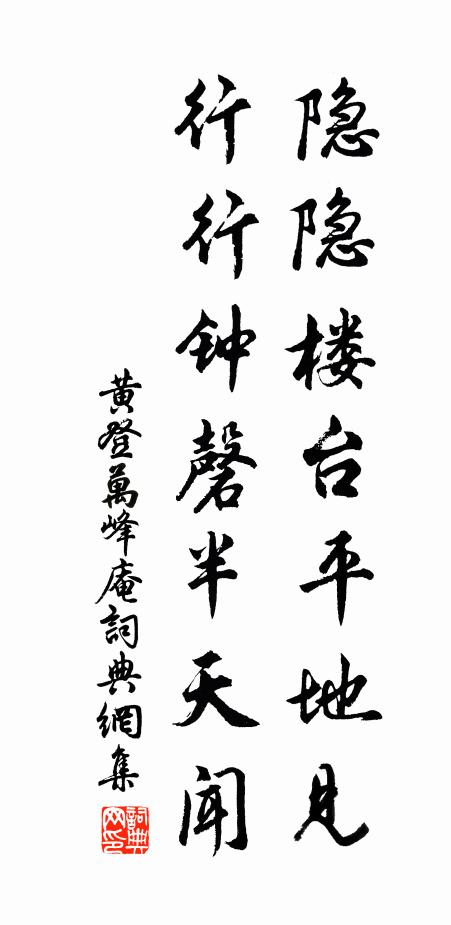 隐隐楼台平地见
行行钟磬半天闻
黄登萬峰庵詞典網集
詞典网印